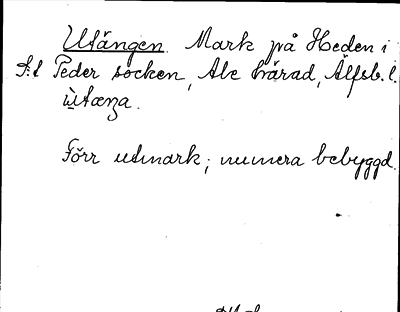 Utängen Mark på Heden i
S:t Peder socken, Ale härad, Älfsb. l.
ùtæŋa.
Förr utmark; numera bebyggd.